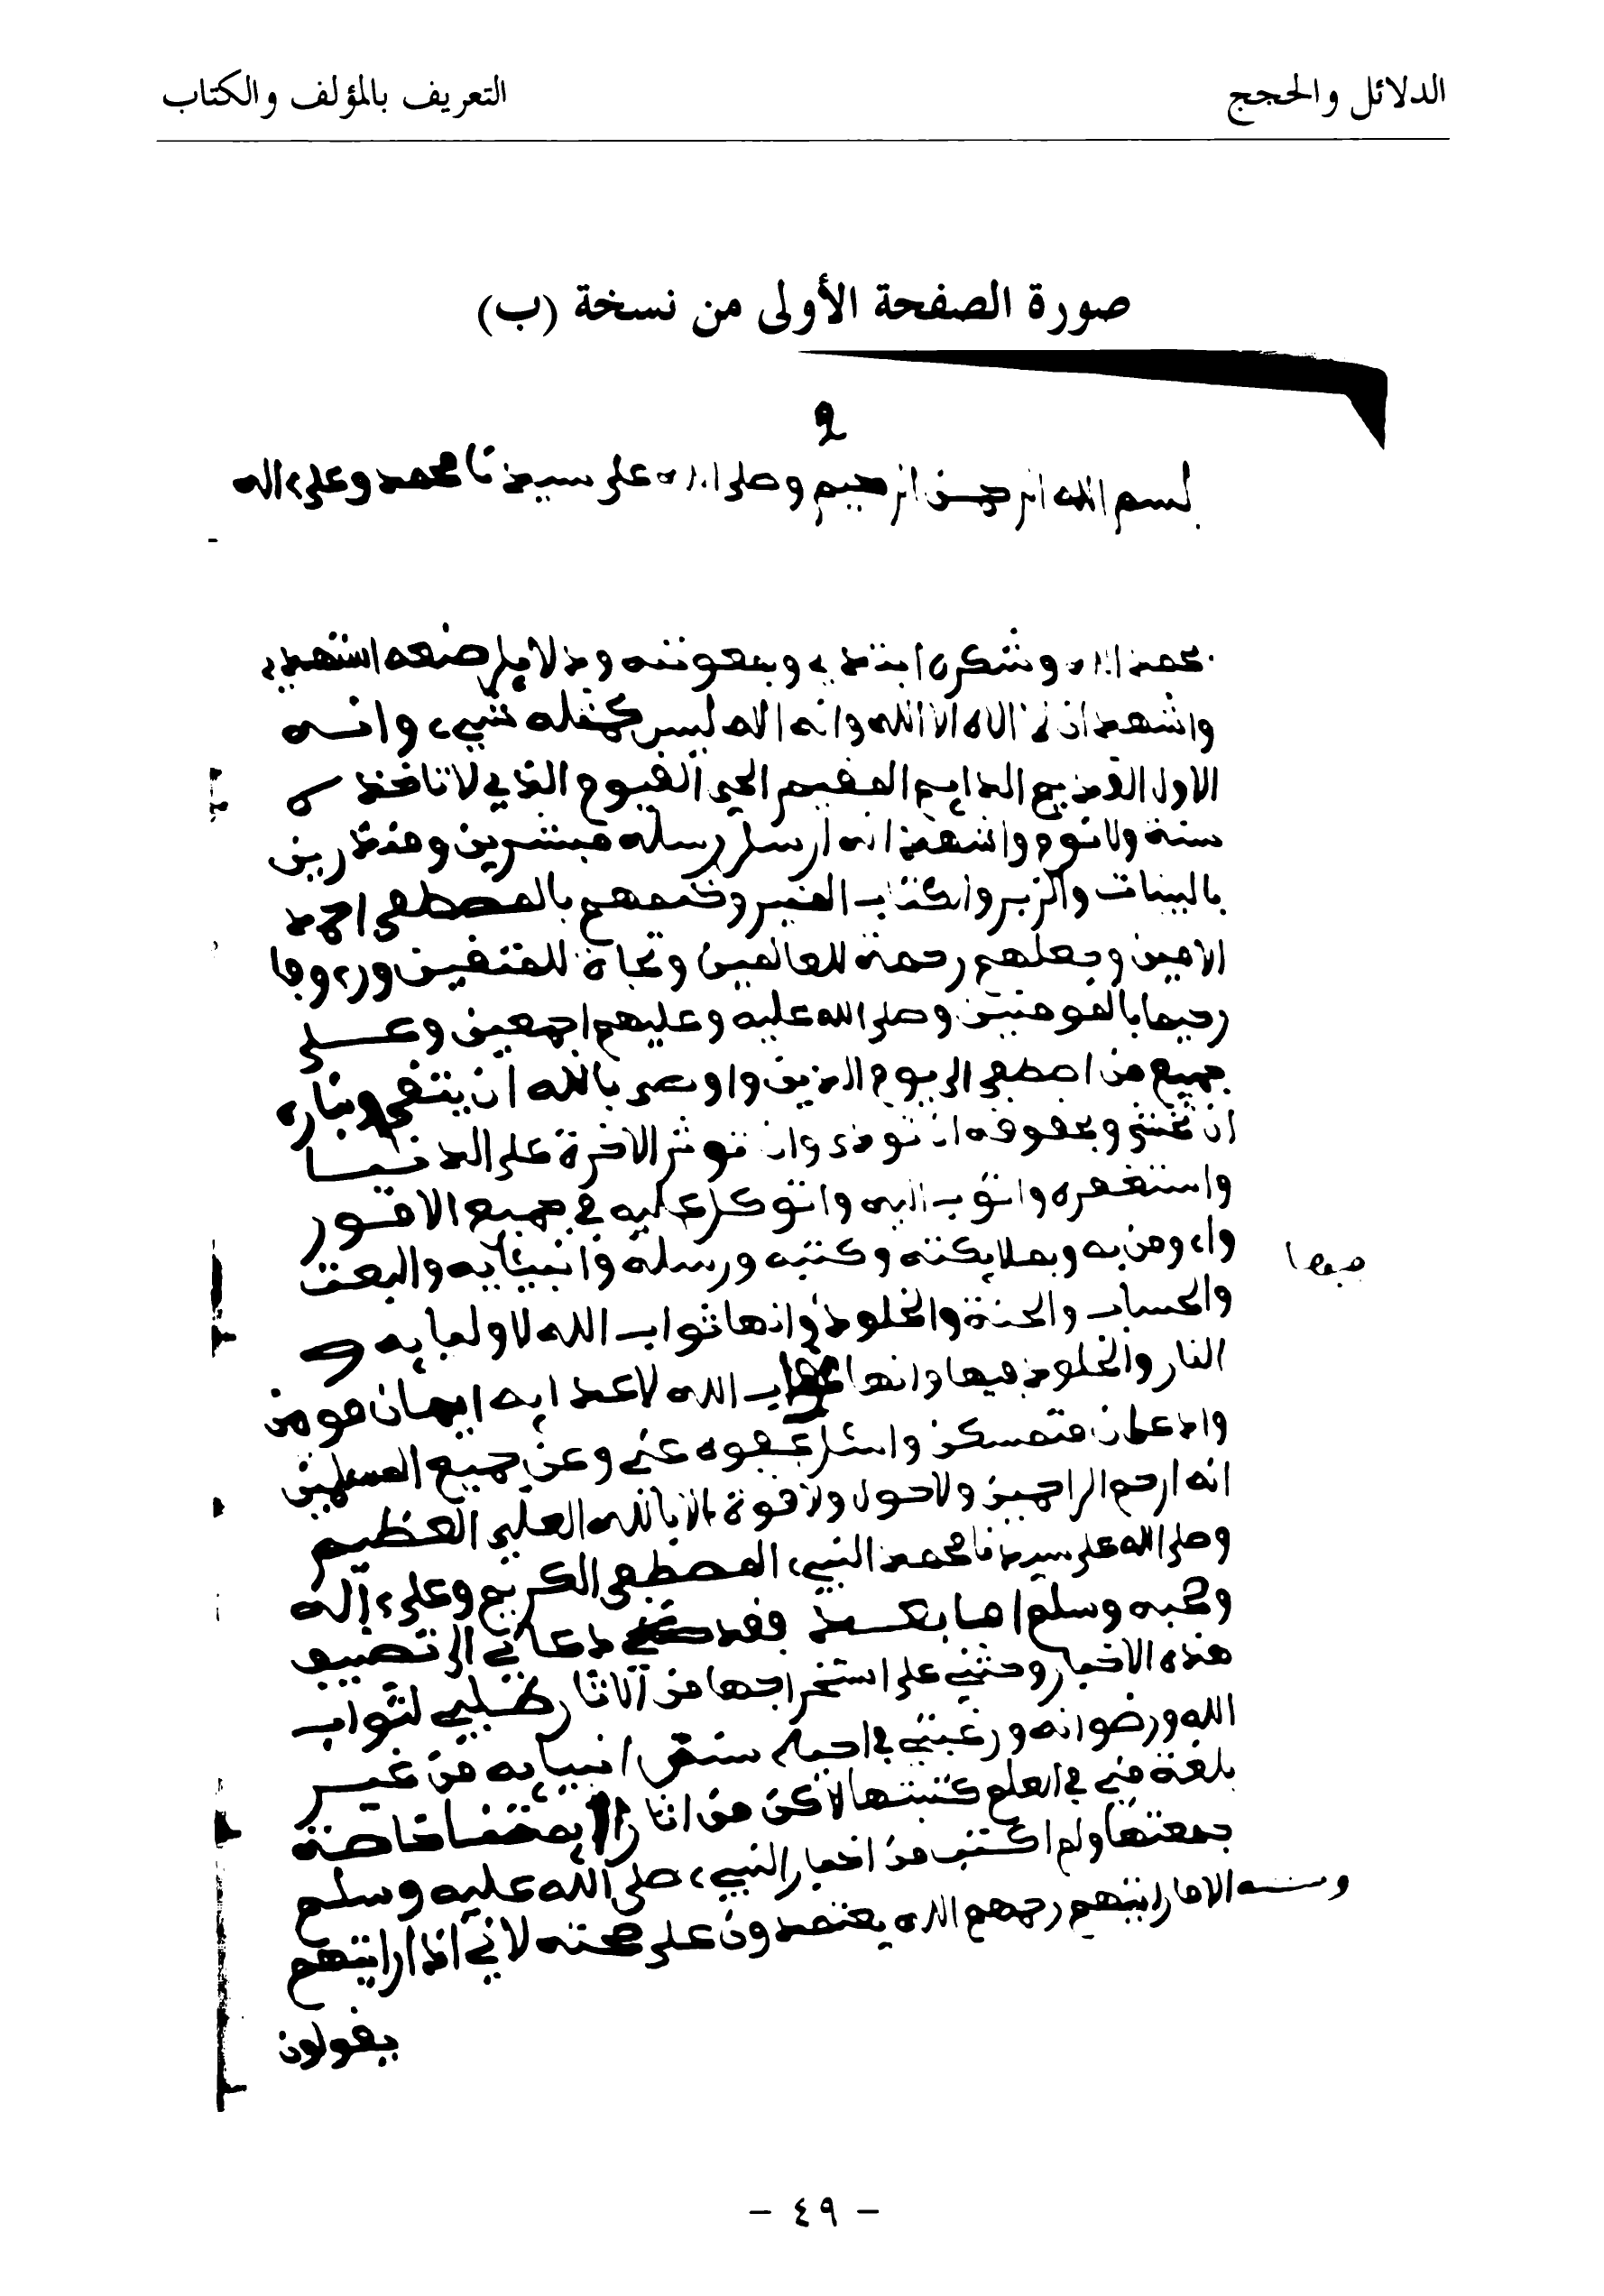 الدلائل والحجج
التعريف بالمؤلف والكتاب
صورة الصفحة الأولى من نسخة (ب)
بسم الله الرحمن الرحيم وصلى الله على سيدنا محمد وعلى اله
بحمد الله وشكره ابتدي وبمعونته ودلايل صنعه استهدي
واشهد ان لا الاه الا الله وانه الاه ليس كمثله شيء وانه
الاول القديم الدايم المقيم الحي القيوم الذي لا تاخذه
سنة ولا نوم واشهد انه ارسل رسله مبشرين ومنذرين
بالبينات والزبر والكتاب المنير وختمهم بالمصطفى احمد
الامين وجعلهم رحمة للعالمين ونجاة للمتقين ورءوفا
رحيما بالمومنين وصلى الله عليه وعليهم اجمعين وعلى
جميع من اصطفى الى يوم الدين واوصى بالله ان يتقى وبناره
ان تخشى وبحقوقه ان تودى وان توثر الاخرة على الدنيا
واستغفره واتوب اليه واتوكل عليه في جميع الامور
واءومن به وبملايكته وكتبه ورسله وانبيايه والبعث
فيها
والحساب والجنة والخلود وانها ثواب الله لاوليايه و
النار والخلود فيها وانها عقاب الله لاعدايه ايمان مومن
واذعان متمسكن واسئل عفوه عني وعن جميع المسلمين
انه ارحم الراحمين ولا حول ولا قوة الا بالله العلي العظيم
وصلى الله على سيدنا محمد النبيء المصطفى الكريم وعلىء اله
وصحبه وسلم اما بعد فقد دعاني الى تصنيف
هذه الاخبار وحثني على استخراجها من الاثار طلبي لثواب
الله ورضوانه ورغبتي في احياء سنن انبيايه من غير
بلغة مني في العلم كتبتها لاكن من اثار ايمتنا خاصة
جمعتها ولم اكتب من اخبار النبيء صلى الله عليه وسلم
وسننه الا ما رايتهم رحمهم الله يعتمدون على صحته لاني اذا رايتهم
يقولون
- ٤٩ -